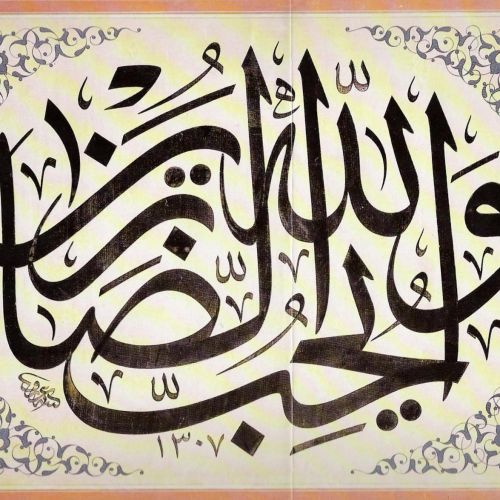 وَاللّٰهُ يُحِبُّ الصَّابِرِينَ
١٣٠٧